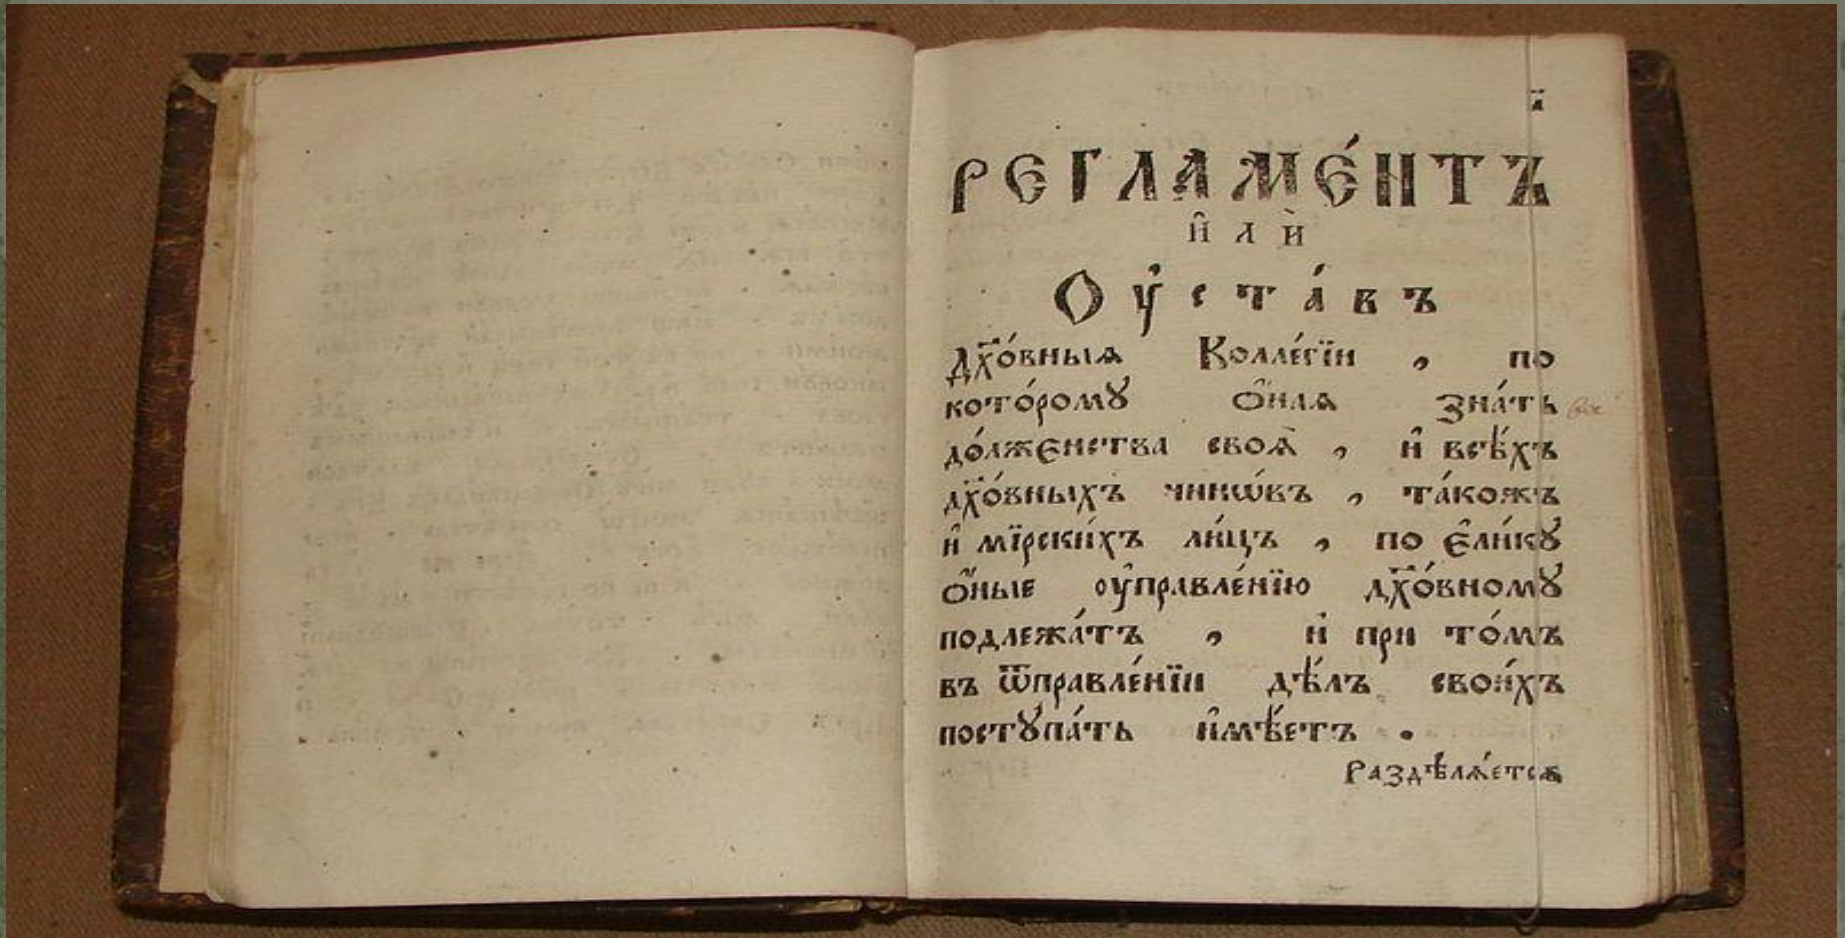 РЕГЛАМЕ́НТЪ
и҆лѝ
Оу҆ста́въ
дх҃о́вныѧ Колле́гїи , по
кото́рому ѻ҆́наѧ зна́ть
до́лженства своѧ̀ , и҆ всѣ́хъ
дх҃о́вныхъ чинѡ́въ , та́кожъ
и҆ мїрски́хъ ли́цъ , по є҆ли́кꙋ
ѻ҆́ные оу҆правле́нїю дх҃о́вномꙋ
подлежа́тъ , и҆ при то́мъ
въ ѿправле́нїи дѣ́лъ свои́хъ
постꙋпа́ть и҆мѣ́етъ .
Раздѣлѧ́етсѧ